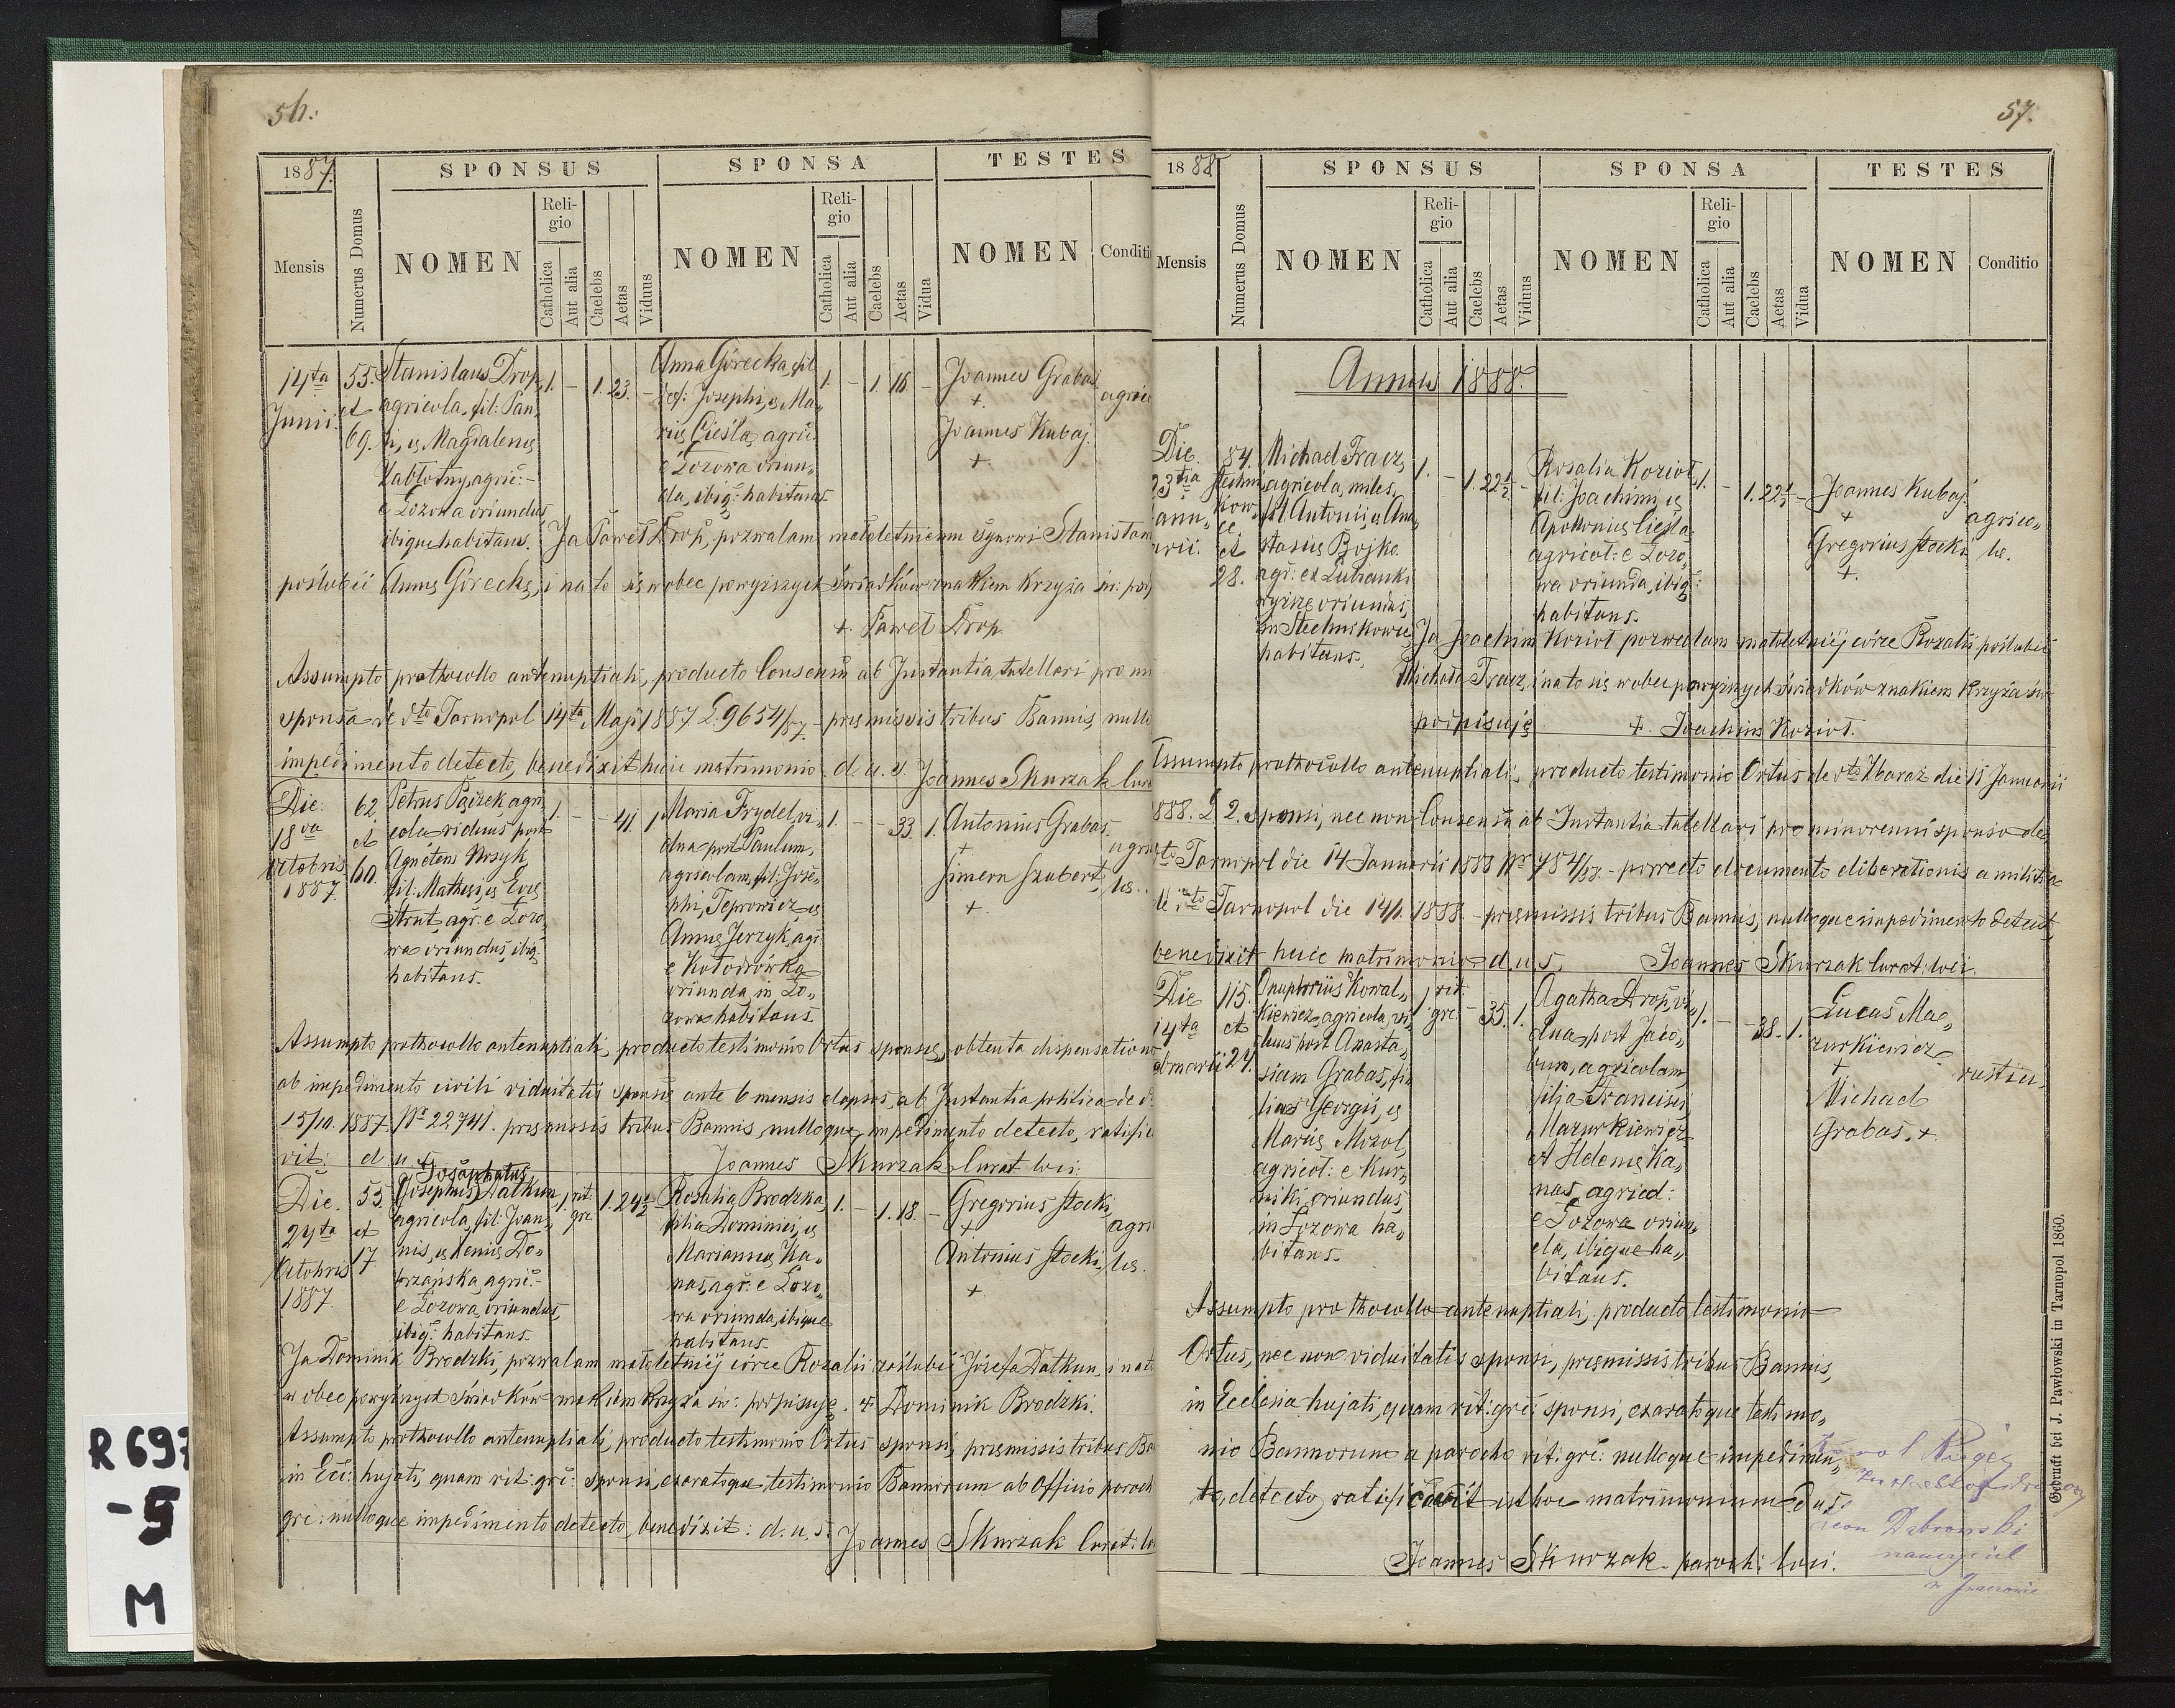 56.
1887.
SPONSUS
SPONSA
TESTES
Mensis
Numerus Domus
NOMEN
Religio
Catholica
Aut alia
Caelebs
Aetas
Viduus
NOMEN
Religio
Catholica
Aut alia
Caelebs
Aetas
Vidua
NOMEN
Conditi
14ta
Junii
55.
et
69.
Stanislaus Drop,
agricola, fil: Pau„
li, et Magdalenę
Zabłotny, agric:
e Łozowa oriundus,
ibique habitans.
1. - 1. 23. -
Anna Górecka, fil
Josephi, et Ma„
rię Cieśla, agric
e Łozowa oriun„
da, ibiq: habitans
1. - 1. 16 -
Joannes Grabas
+
Joannes Kubaj.
+
agric
Ja Paweł Drop, pozwalam małoletniemu synowi Stanisław
poślubić Annę Górecką, i na to się wobec powyższych świadków znakiem krzyża św: pod
+ Paweł Drop.
Assumpto prothocollo antenuptiali, producto Consensu ab Instantia tutellari pro mi
sponsa de dto Tarnopol 14ta Maji 1887 L. 9654/87. pręmissis tribus Bannis, nullo
impedimento detecto, benedixit huic matrimonio d. u. s. Joannes Skurzak Cura
Die:
18va
Octobris
1887
62
et
60.
Petrus Pączek, agri
cola viduus post
Agnetem Wszyk,
fil: Mathęi, et Evę
Strut, agr: e Łozo
wa oriundus, ibiq
habitans.
1. - - 41. 1
Maria Frydel, vi„
dua post Paulum,
agricolam, fil: Jose„
phi, Teprowicz, et
Annę Jerzyk, agr:
e Kołodrówka
oriunda, in Ło„
zowa habitans
1. - - 33 1.
Antonius Grabas.
+
Simeon Szubert,
+
agri
lę.
Assumpto prothocollo antenuptiali, producto testimonio Ortus sponsę, obtenta dispensatione
ab impedimento civili viduitatis sponsę ante 6 mensis elapsos, ab Instantia politica de d
15/10. 1887. Nr 22741. pręmissis tribus Bannis, nulloque impedimento detecto, ratific
vit: d u s Joannes Skurzak Curat loci.
Die.
24ta
Octobris
1887.
55.
et
17
Josaphatus
(Josephus) Datkun
agricola, fil: Joan„
nis, et Xenię Do„
brzańska, agric:
e Łozowa, oriundus,
ibiq: habitans.
1. rit. gre. 1. 24½ -
Rosalia Brodzka,
filia Dominici, et
Mariannę Ka„
nas, agr: e Łozo„
wa oriunda, ibique
habitans.
1. - 1. 18. -
Gregorius Stocki,
+
Antonius Stocki,
+
agri
lę.
Ja Dominik Brodzki, pozwalam małoletniéj córce Rozalii zaślubić Józefa Datkun, i na to
wobec powyższych świadków znakiem krzyża św: podpisuję. + Dominik Brodzki.
Assumpto prothocollo antenuptiali, producto testimonio Ortus sponsi, pręmissis tribus Ba
in Ecc: hujati, quam rit: gre: sponsi, exaratoque testimonio Bannorum ab Officio paroch
gre: nulloque impedimento detecto, benedixit: d. u. s. Joannes Skurzak Curat: lo
57.
1888
SPONSUS
SPONSA
TESTES
Mensis
Numerus Domus
NOMEN
Religio
Catholica
Aut alia
Caelebs
Aetas
Viduus
NOMEN
Religio
Catholica
Aut alia
Caelebs
Aetas
Vidua
NOMEN
Conditio
Annus 1888.
Die
23tia
Janu„
arii.
84.
Stechni
kow„
ce
et
28.
Michael Tracz,
agricola, miles,
fil. Antonii, et Ana„
stasię Bojko
agr: ex Lubianki
wyższe oriundus,
in Stechnikowce
habitans.
1. - 1. 22½ -
Rosalia Kozioł,
fil: Joachimi, et
Apolonię Cieśla
agricol: e Łozo„
wa oriunda, ibiq:
habitans.
1. - 1. 22½ -
Joannes Kubaj.
+
Gregorius Stocki
+.
agrico„
lę.
Ja Joachim Kozioł pozwalam małoletniéj córce Rozalii poślubić
Michała Tracz, i na to się wobec powyższych świadków znakiem krzyża św
podpisuję + Joachim Kozioł.
Assumpto prothocollo antenuptiali, producto testimonio Ortus de dto Zbaraż die 15 Januarii
1888. L 2. sponsi, nec non Consensu ab Instantia tutellari pro minorenni sponso de
dto Tarnopol die 14 Januarii 1888 Nr 784/88. - porrecto documento eliberationis a militia
de dto Tarnopol die 14/1. 1888. - pręmissis tribus Bannis, nulloque impedimento detecto,
benedixit huic matrimonio d. u. s. Joannes Skurzak Curat: loci.
Die
14ta
ebruarii
115.
et
24.
Onuphrius Kowal„
kiewicz, agricola, vi„
duus post Anasta„
siam Grabas, fi„
lius Georgii, et
Marię Mizoł,
agricol: e Kur„
niki oriundus,
in Łozowa ha„
bitans.
1 rit. gre. - 35. 1.
Agatha Drop, vi„
dua post Jaco„
bum, agricolam,
filia Francisci
Mazurkiewicz
et Helenę Ka„
nas, agricol:
e Łozowa oriun„
da, ibique ha„
bitans.
1. - - 38. 1.
Lucas Ma„
zurkiewicz
+
Michael
Grabas, +.
rustici.
Assumpto prothocollo antenuptiali, producto testimonio
Ortus, nec non viduitatis sponsi, pręmissis tribus Bannis,
in Ecclesia hujati, quam rit: gre: sponsi, exaratoque testimo„
nio Bannorum a parocho rit: gre: nulloque impedimen„
to, detecto, ratificavit isthoc matrimonium d u s.
Joannes Skurzak paroch: loci.
Leon Dąbrowski
nauczyciel
Gedruckt bei J. Pawłowski in Tarnopol 1860.
R 697
-5
M